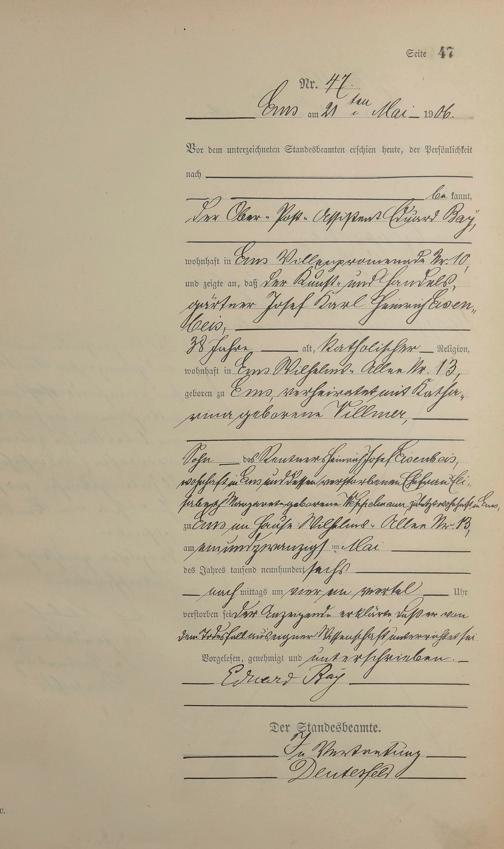 Seite 47
Nr. 47.
Ems am 21ten Mai 1906.
Vor dem unterzeichneten Standesbeamten erschien heute, der Persönlichkeit
nach
bekannt,
der Ober-Post-Assistent Eduard Ray,
wohnhaft in Ems Villenpromenade Nr. 10,
und zeigte an, daß der Kunst- und Handels-
gärtner Josef Karl Heinrich Eisen-
beis,
38 Jahre alt, Katholischer Religion,
wohnhaft in Ems Wilhelms-Allee Nr. 13,
geboren zu Ems, verheiratet mit Katha-
rina geborene Villmer,
Sohn des Rentners Heinrich Josef Eisenbeis,
wohnhaft in Ems und dessen verstorbenen Ehefrau Eli-
sabeth Margaret geborene zuletzt wohnhaft in Ems,
zu Ems im Hause Wilhelms-Allee Nr. 13,
am einundzwanzigsten Mai
des Jahres tausend neunhundert sechs
nachmittags um vier ein viertel Uhr
verstorben sei der Anzeigende erklärte, daß er von
dem Todesfall aus eigner Wissenschaft unterrichtet sei.
Vorgelesen, genehmigt und unterschrieben.
Eduard Ray
Der Standesbeamte.
In Vertretung